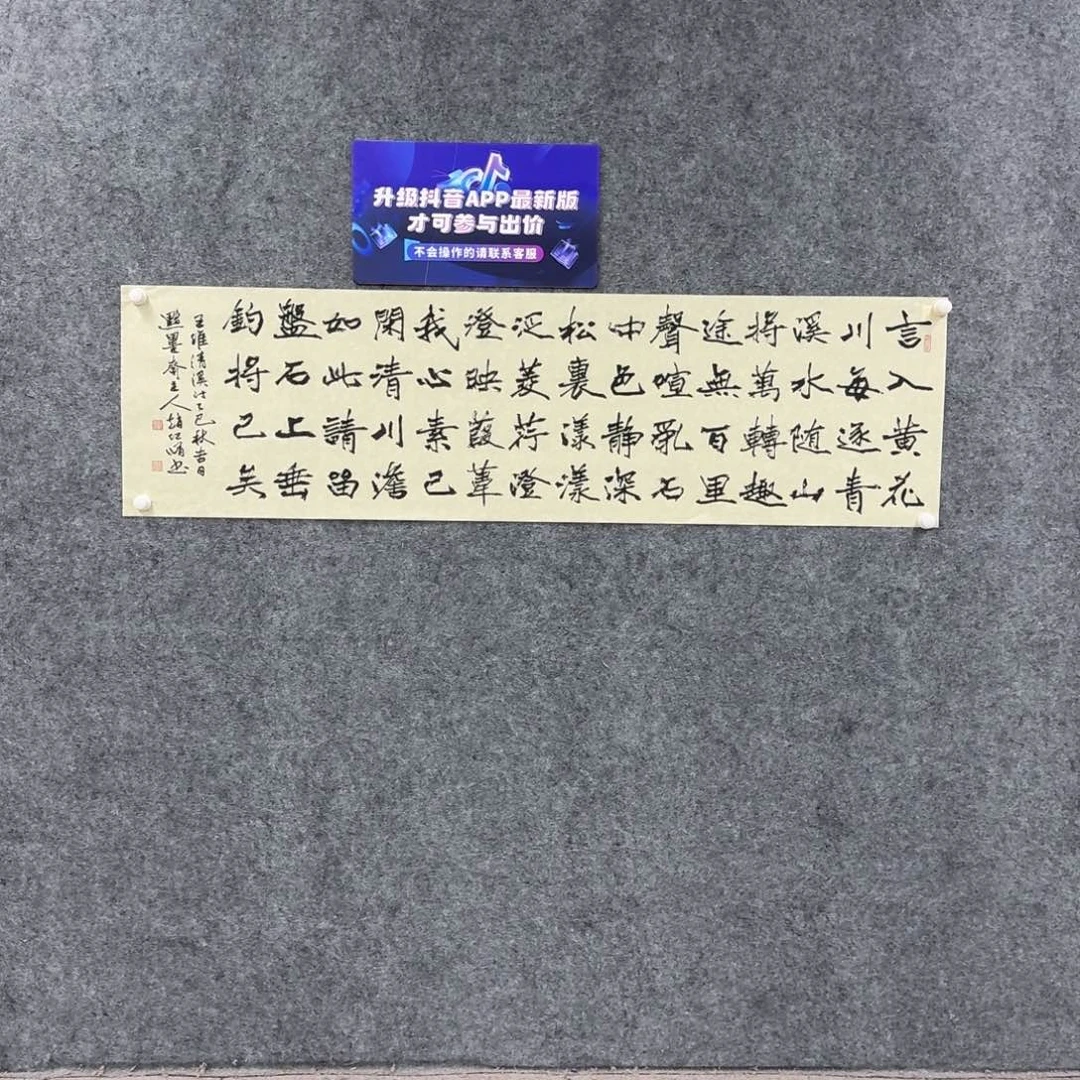 升级抖音APP最新版
才可参与出价
不会操作的请联系客服
言入黄花
川每逐青
溪水随山
将萬轉趣
途無百里
聲喧乱石
中色静深
松裏漾漾
泛菱荇澄
澄映葭葦
我心素已
閑清川澹
如此請留
盤石上垂
釣将已矣
王維清溪诗乙巳秋吉日
點墨齋主人趙書